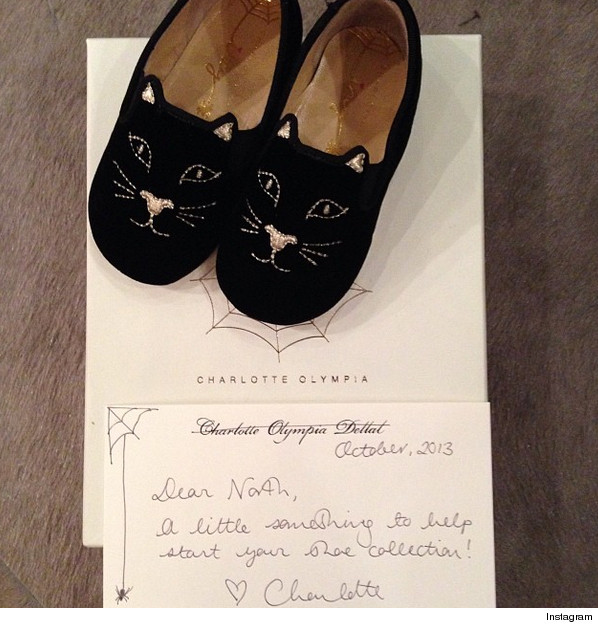 CHARLOTTE OLYMPIA
Charlotte Olympia Dellal
October, 2013
Dear North,
A little something to help
start your shoe collection!
♡ Charlotte
Instagram